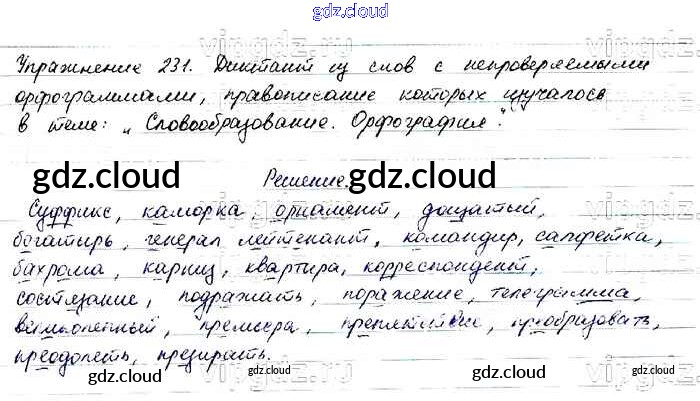 gdz.cloud
Упражнение 231. Диктант из слов с непроверяемыми
орфограммами, правописание которых изучалось
в теме: „Словообразование. Орфография".
gdz.cloud gdz.cloud
Решение.
Суффикс, каморка, орнамент, дощатый,
богатырь, генерал лейтенант, командир, салфетка,
бахрома, карниз, квартира, корреспондент,
состязание, подражать, поражение, телеграмма,
премьера, препятствие, преобразовать,
преодолеть, презирать.
gdz.cloud gdz.cloud gdz.cloud